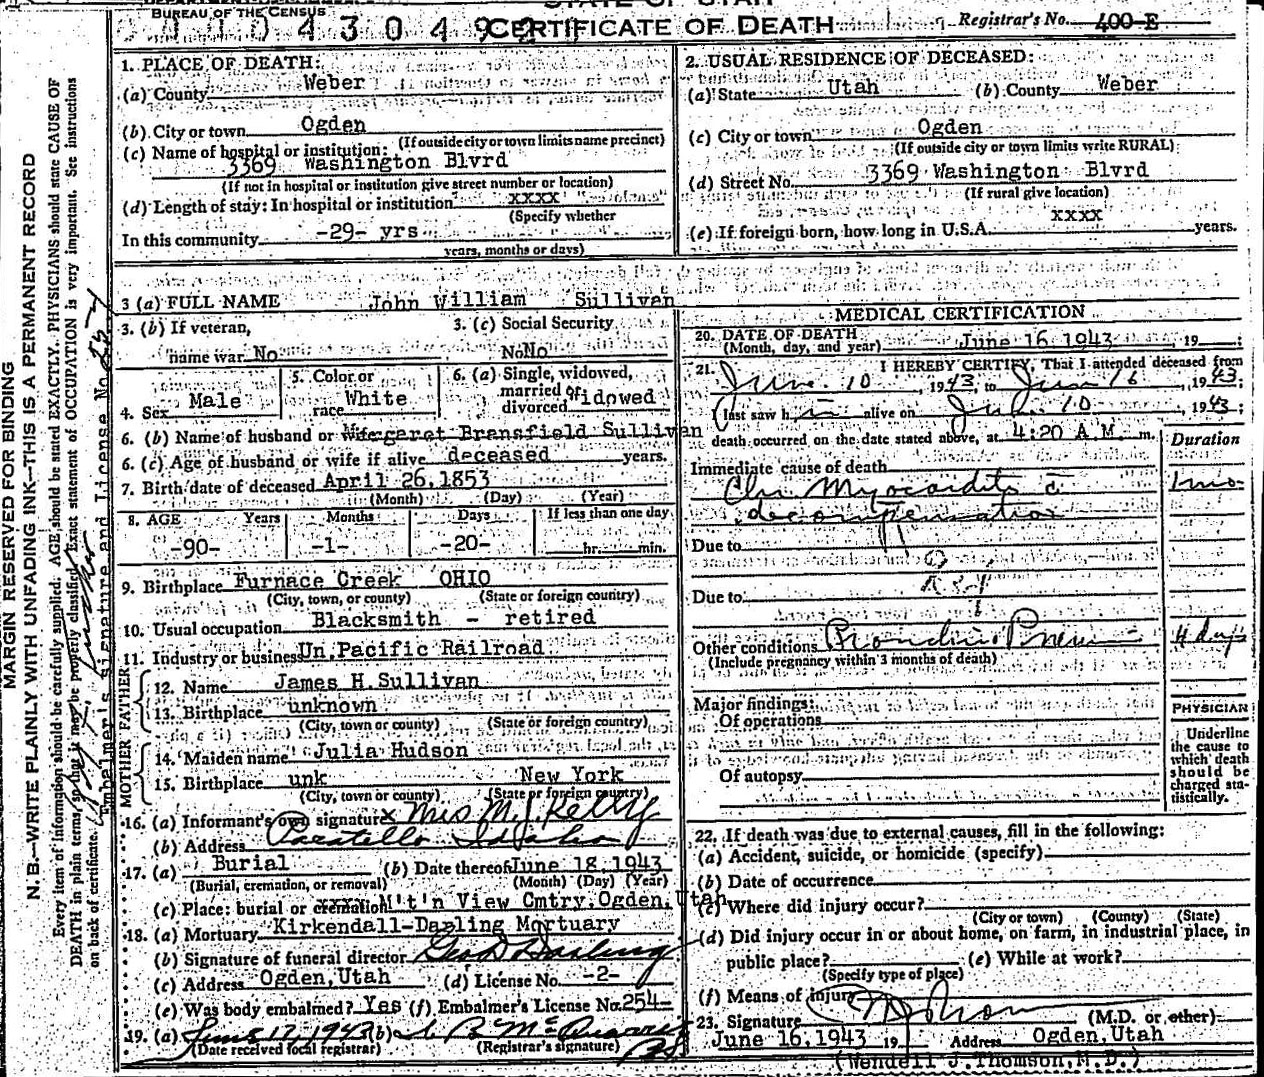 STATE OF UTAH
BUREAU OF THE CENSUS
CERTIFICATE OF DEATH
Registrar's No. 400-E
1. PLACE OF DEATH:
(a) County Weber
(b) City or town Ogden
(If outside city or town limits name precinct)
(c) Name of hospital or institution:
3369 Washington Blvrd
(If not in hospital or institution give street number or location)
(d) Length of stay: In hospital or institution xxxx
(Specify whether
In this community -29- yrs
years, months or days)
2. USUAL RESIDENCE OF DECEASED:
(a) State Utah (b) County Weber
(c) City or town Ogden
(If outside city or town limits write RURAL)
(d) Street No. 3369 Washington Blvrd
(If rural give location)
xxxx
(e) If foreign born, how long in U.S.A. years.
3 (a) FULL NAME John William Sullivan
3. (b) If veteran,
name war No
3. (c) Social Security
No No
4. Sex Male
5. Color or
race White
6. (a) Single, widowed,
married or
divorced Widowed
6. (b) Name of husband or wife Margaret Bransfield Sullivan
6. (c) Age of husband or wife if alive deceased years.
7. Birth date of deceased April 26,1853
(Month) (Day) (Year)
8. AGE Years Months Days If less than one day
-90- -1- -20- hr. min.
9. Birthplace Furnace Creek OHIO
(City, town, or county) (State or foreign country)
10. Usual occupation Blacksmith - retired
11. Industry or business Un.Pacific Railroad
FATHER
12. Name James H.Sullivan
13. Birthplace unknown
(City, town or county) (State or foreign country)
MOTHER
14. Maiden name Julia Hudson
15. Birthplace unk New York
(City, town or county) (State or foreign country)
16. (a) Informant's own signature x Mrs M. J. Kelly
(b) Address Pocatello Idaho
17. (a) Burial (b) Date thereof June 18,1943
(Burial, cremation, or removal) (Month) (Day) (Year)
(c) Place: burial or cremation M't'n View Cmtry.Ogden,Utah
18. (a) Mortuary Kirkendall-Darling Mortuary
(b) Signature of funeral director Geo D Darling
(c) Address Ogden,Utah (d) License No. -2-
(e) Was body embalmed? Yes (f) Embalmer's License No. 254-
19. (a) June 17, 1943 (b)
(Date received local registrar) (Registrar's signature)
MEDICAL CERTIFICATION
20. DATE OF DEATH
(Month, day, and year) June 16,1943 19
21. I HEREBY CERTIFY, That I attended deceased from
June 10, 1943, to June 16, 1943;
I last saw him alive on June 10, 1943;
death occurred on the date stated above, at 4:20 A.M. m.
Duration
Immediate cause of death
Chr Myocarditis c̄ 1 mo.
decompensation
Due to
Due to
Other conditions 4 days
(Include pregnancy within 3 months of death)
Major findings:
Of operations
Of autopsy
PHYSICIAN
Underline
the cause to
which death
should be
charged sta-
tistically.
22. If death was due to external causes, fill in the following:
(a) Accident, suicide, or homicide (specify)
(b) Date of occurrence
(c) Where did injury occur?
(City or town) (County) (State)
(d) Did injury occur in or about home, on farm, in industrial place, in
public place? (e) While at work?
(Specify type of place)
(f) Means of injury
23. Signature (M.D. or other)
June 16,1943 19 Address Ogden,Utah
(Wendell J.Thomson,M.D.)
MARGIN RESERVED FOR BINDING
N. B.—WRITE PLAINLY WITH UNFADING INK—THIS IS A PERMANENT RECORD
Every item of information should be carefully supplied. AGE should be stated EXACTLY. PHYSICIANS should state CAUSE OF
DEATH in plain terms, so that it may be properly classified. Exact statement of OCCUPATION is very important. See instructions
on back of certificate.
Embalmer's signature and License No.